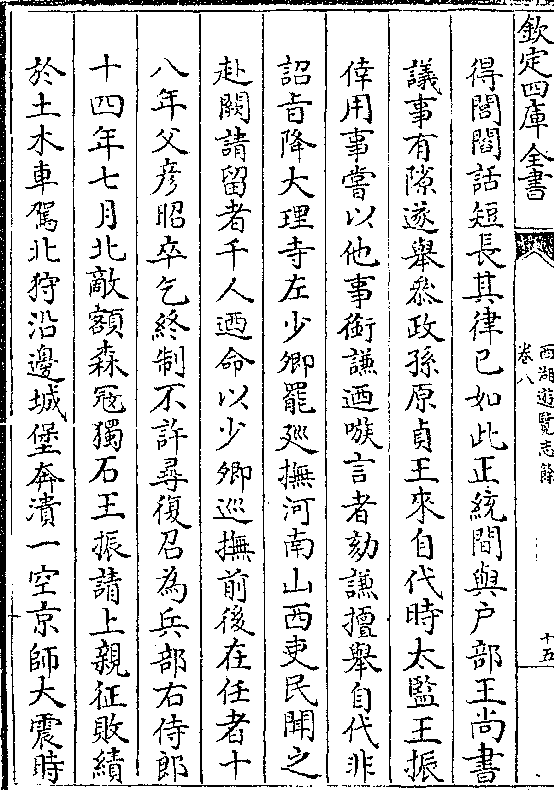 欽定四庫全書
西湖遊覽志餘
卷八
十五
得閭閻話短長其律已如此正統間與户部王尚書
議事有隙遂舉叅政孫原貞王來自代時太監王振
倖用事嘗以他事銜謙迺嗾言者劾謙擅舉自代非
詔㫖降大理寺左少卿罷廵撫河南山西吏民聞之
赴闕請留者千人迺命以少卿巡撫前後在任者十
八年父彦昭卒乞終制不許尋復召為兵部右侍郎
十四年七月北敵額森寇獨石王振請上親征敗績
於土木車駕北狩沿邊城堡奔潰一空京師大震時